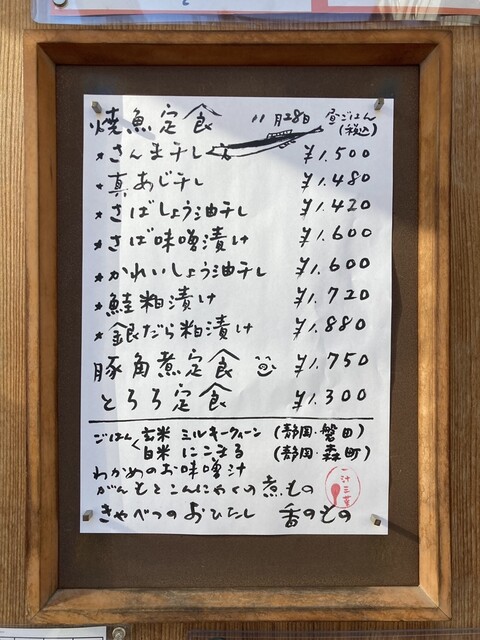 焼魚定食 11月28日 昼ごはん
(税込)
*さんま干し ¥1.500
*真あじ干し ¥1.480
*さばしょう油干し ¥1.420
*さば味噌漬け ¥1.600
*かれいしょう油干し ¥1.600
*鮭粕漬け ¥1.720
*銀だら粕漬け ¥1.880
豚角煮定食 ¥1.750
とろろ定食 ¥1.300
ごはん 玄米 ミルキークイーン (静岡・磐田)
白米 にこまる (静岡・森町)
わかめのお味噌汁
がんもとこんにゃくの煮もの
きゃべつのおひたし 香のもの
一汁三菜